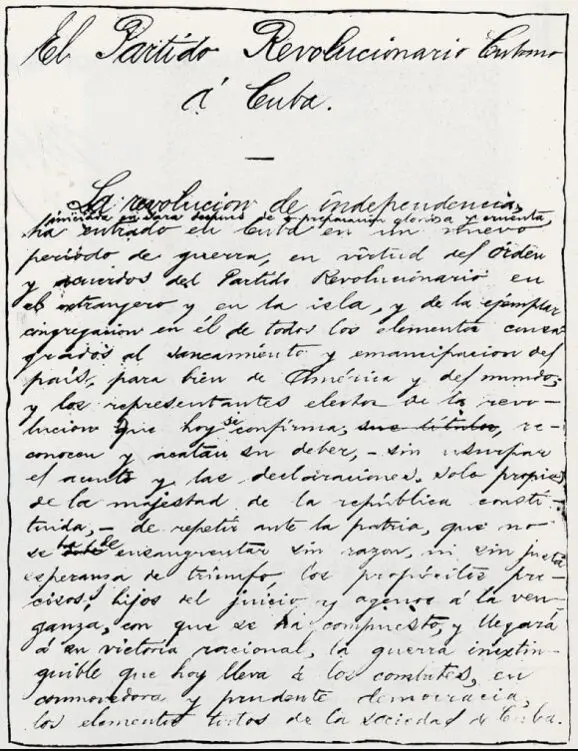 El Partido Revolucionario Cubano
á Cuba.
La revolucion de independencia,
iniciada en Yara despues de preparacion gloriosa y cruenta,
ha entrado en Cuba en un nuevo
periodo de guerra, en virtud del órden
y acuerdos del Partido Revolucionario en
el extranjero y en la isla, y de la ejemplar
congregacion en él de todos los elementos consa-
grados al saneamiento y emancipacion del
país, para bien de América y del mundo;
y los representantes electos de la revo-
lucion que hoy se confirma, sus títulos, re-
conocen y acatan su deber, – sin usurpar
el acento y las declaraciones solo propias
de la majestad de la república consti-
tuida, – de repetir ante la patria, que no
se ha de ensangrentar sin razon, ni sin justa
esperanza de triunfo, los propósitos pre-
cisos, hijos del juicio y agenos á la ven-
ganza, con que se ha compuesto, y llegará
á su victoria racional, la guerra inextin-
guible que hoy lleva á los combates, en
conmovedora y prudente democracia,
los elementos todos de la sociedad de Cuba.